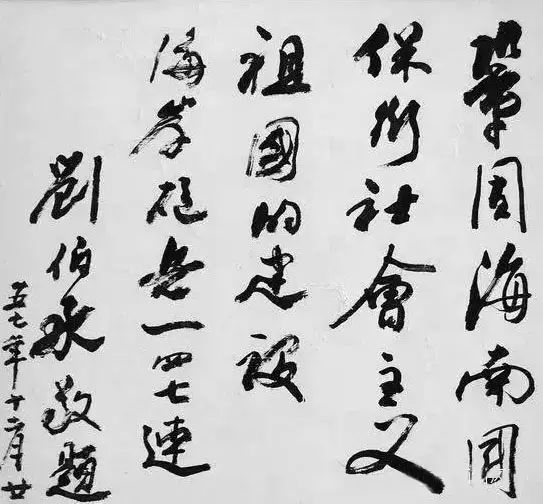 鞏固海南国
保衛社會主义
祖國的建設
海岸砲兵一四七連
劉伯承敬題
五七年十二月廿